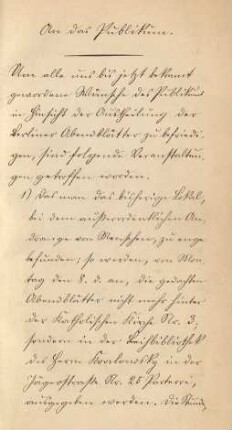 An das Publikum.
Um alle uns bis jetzt bekannt
gewordene Wünsche des Publikums
in Hinsicht der Austheilung der
Berliner Abendblätter zu befriedi-
gen, sind folgende Veranstaltun-
gen getroffen worden.
1) Da man das bisherige Lokal,
bei dem außerordentlichen An-
drange von Menschen, zu enge
befunden; so werden, von Mon-
tag den 8. d. an, die gedachten
Abendblätter nicht mehr hinter
der Katholischen Kirche Nr. 3;
sondern in der Leihbibliothek
des Herrn Kralowsky in der
Jägerstraße Nr. 25 Parterre,
ausgegeben werden. Die Stunde,